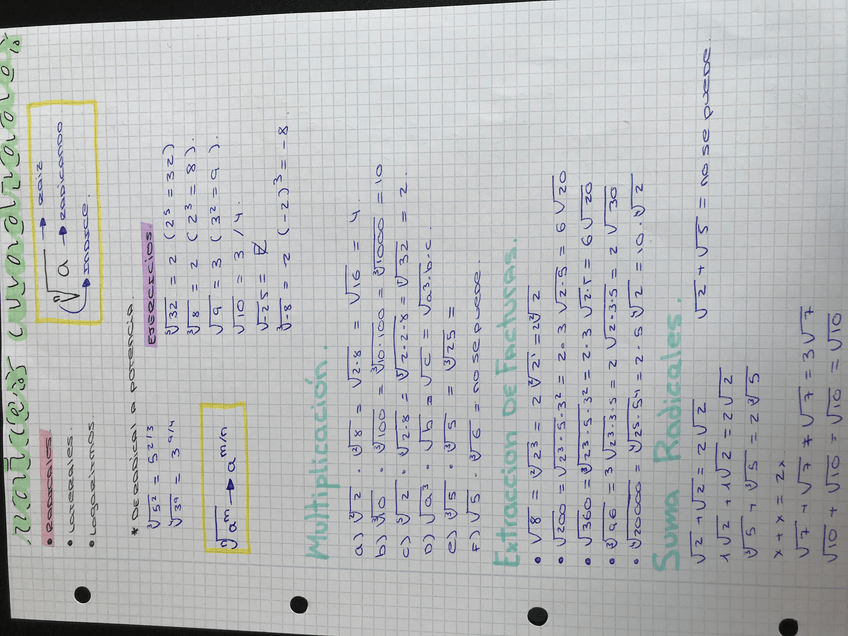 raíces cuadradas
• radicales
• laterales.
• logaritmos
ⁿ√a → raiz
→ radicando
→ indice.
* De radical a potencia.
³√5² = 5^2/3
⁴√3⁹ = 3^9/4
ⁿ√a^m → a^m/n
Ejercicios
⁵√32 = 2 (2⁵ = 32)
³√8 = 2 (2³ = 8).
√9 = 3 (3² = 9).
√10 = 3 / 4.
√-25 = ∄
³√-8 = -2 (-2)³ = -8.
Multiplicación.
a) ²√2 · ²√8 = √2·8 = √16 = 4.
b) ³√10 · ³√100 = ³√10·100 = ³√1000 = 10
c) ⁵√2 · ⁵√2·8 = ⁵√2·2·8 = ⁵√32 = 2.
D) √a³ · √b = √c = √a³·b·c.
e) ³√5 · ³√5 = ³√25 =
F) √5 · ³√6 = no se puede.
Extraccion De Facturas.
• √8 = ²√2³ = 2 ²√2¹ = 2²√2
• √200 = √2³·5·3² = 2·3 √2·5 = 6√20
• √360 = √2³·5·3² = 2·3 √2·5 = 6√20
• ³√96 = ³√2³·3·5 = 2 √2·3·5 = 2 √30
• ⁴√20000 = ⁴√2⁵·5⁴ = 2·5 √2 = 10·⁴√2
Suma Radicales.
√2 + √2 = 2√2
√2 + √5 = no se puede.
1√2 + 1√2 = 2√2
³√5 + ³√5 = 2³√5
x + x = 2x
√7 + √7 + √7 = 3√7
√10 + √10 = √10 = √10